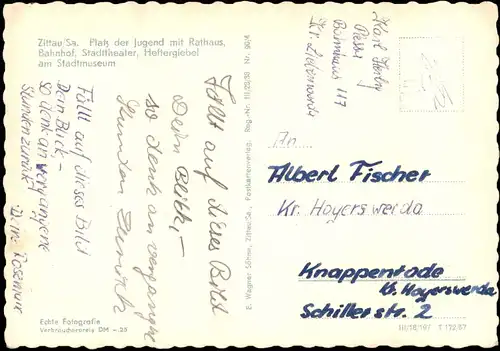 Zittau/Sa. Platz der Jugend mit Rathaus,
Bahnhof, Stadttheater, Heftergiebel
am Stadtmuseum
Fällt auf dieses Bild
Dein Blick, –
so denk an vergangene
Stunden zurück
Fällt auf dieses Bild
Dein Blick, –
so denk an vergangene
Stunden Zurück
Echte Fotografie
Verbraucherpreis DM -.25
E. Wagner Söhne, Zittau/Sa., Postkartenverlag, Reg.-Nr. III/28/53 Nr. 99/4
117
An
Albert Fischer
Kr. Hoyerswerda
Knappenrode
Kr. Hoyerswerda
Schillerstr. 2